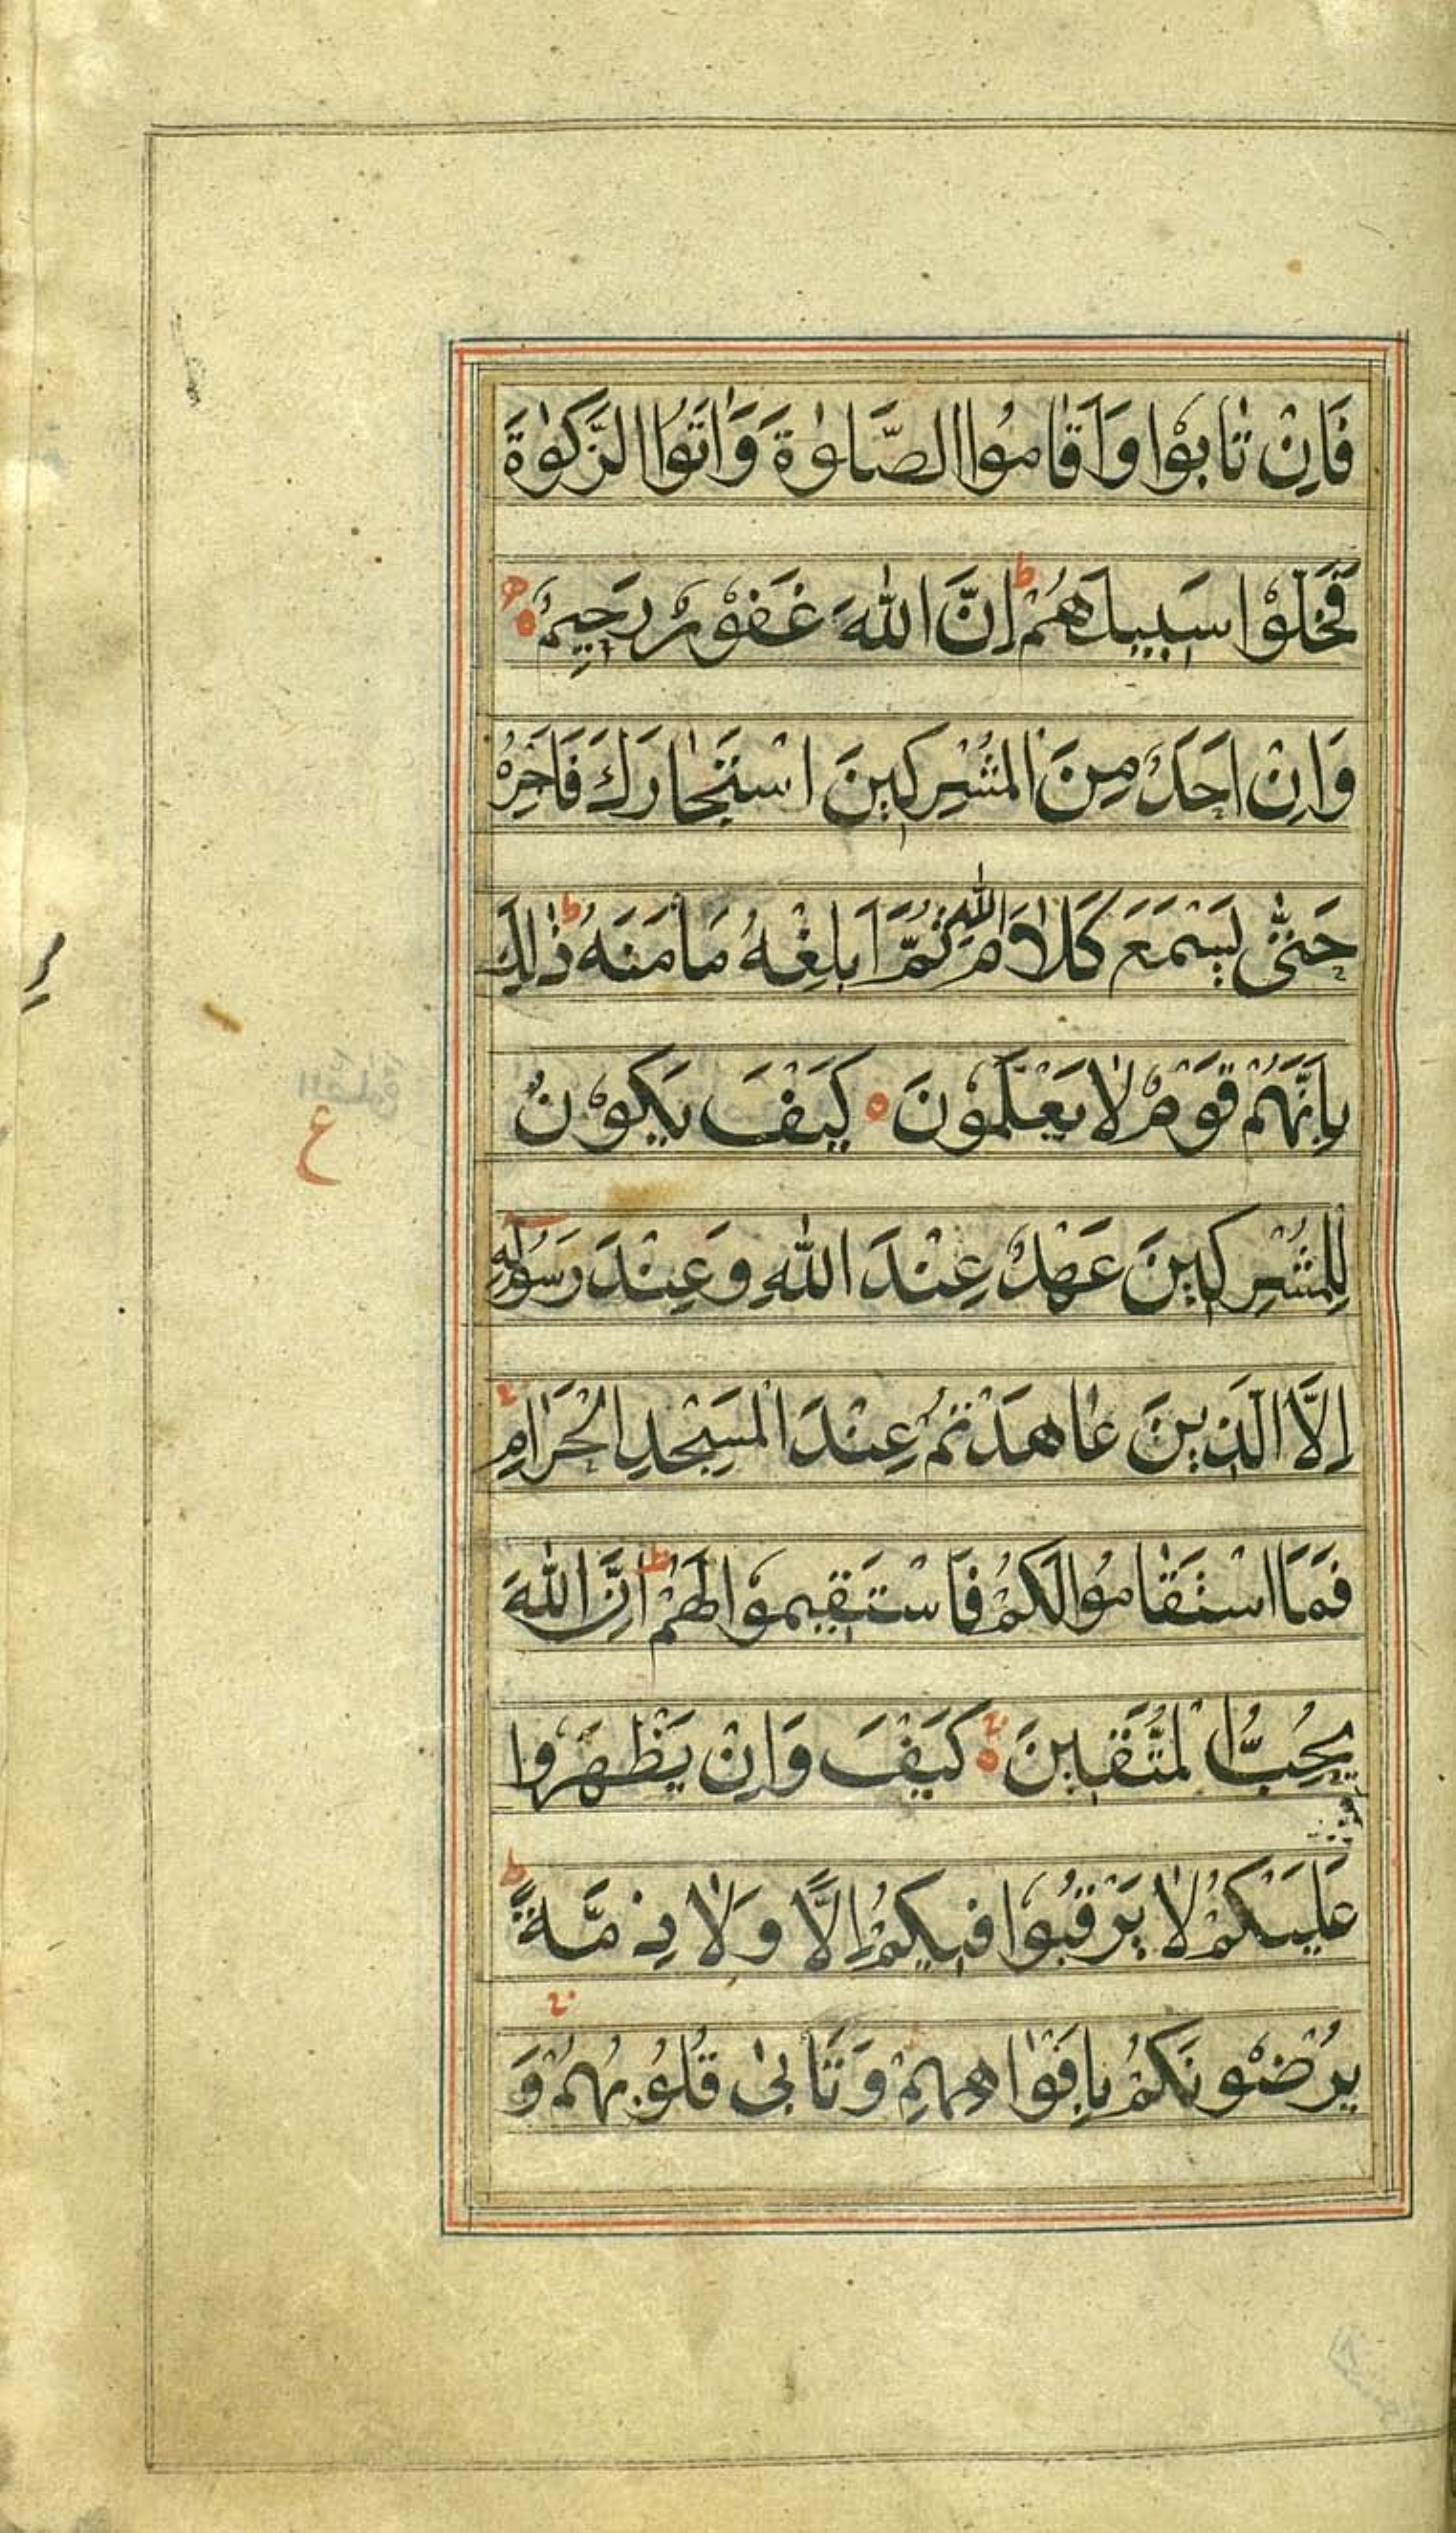 فَاِنْ تَابُوْا وَاَقَامُوا الصَّلٰوةَ وَاٰتَوُا الزَّكٰوةَ
فَخَلُّوْا سَبِيلَهُمْ ط اِنَّ اللهَ غَفُوْرٌ رَحِيمٌ ه
وَاِنْ اَحَدٌ مِنَ الْمُشْرِكِينَ اسْتَجَارَكَ فَاَجِرْهُ
حَتّٰى يَسْمَعَ كَلَامَ اللهِ ثُمَّ اَبْلِغْهُ مَاْمَنَهُ ط ذٰلِكَ
بِاَنَّهُمْ قَوْمٌ لَا يَعْلَمُوْنَ ه كَيْفَ يَكُوْنُ
ع
لِلْمُشْرِكِينَ عَهْدٌ عِنْدَ اللهِ وَعِنْدَ رَسُوْلِهِ
اِلَّا الَّذِينَ عَاهَدْتُمْ عِنْدَ الْمَسْجِدِ الْحَرَامِ
فَمَا اسْتَقَامُوا لَكُمْ فَاسْتَقِيمُوْا لَهُمْ ط اِنَّ اللهَ
يُحِبُّ الْمُتَّقِينَ ه كَيْفَ وَاِنْ يَظْهَرُوا
عَلَيْكُمْ لَا يَرْقُبُوْا فِيكُمْ اِلًّا وَلَا ذِمَّةً ط
يُرْضُوْنَكُمْ بِاَفْوَاهِهِمْ وَتَاْبٰى قُلُوْبُهُمْ وَ